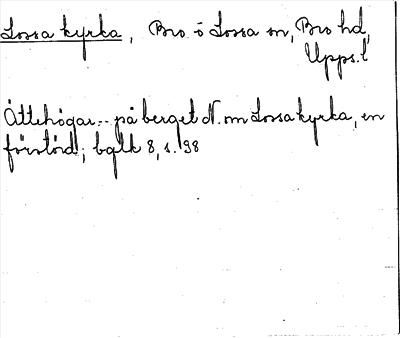 Lossa kyrka, Bro o Lossa sn, Bro hd,
Upps. l
Ättehögar.. på berget N. om Lossa kyrka, en
förstörd; bqlk 8, s. 98